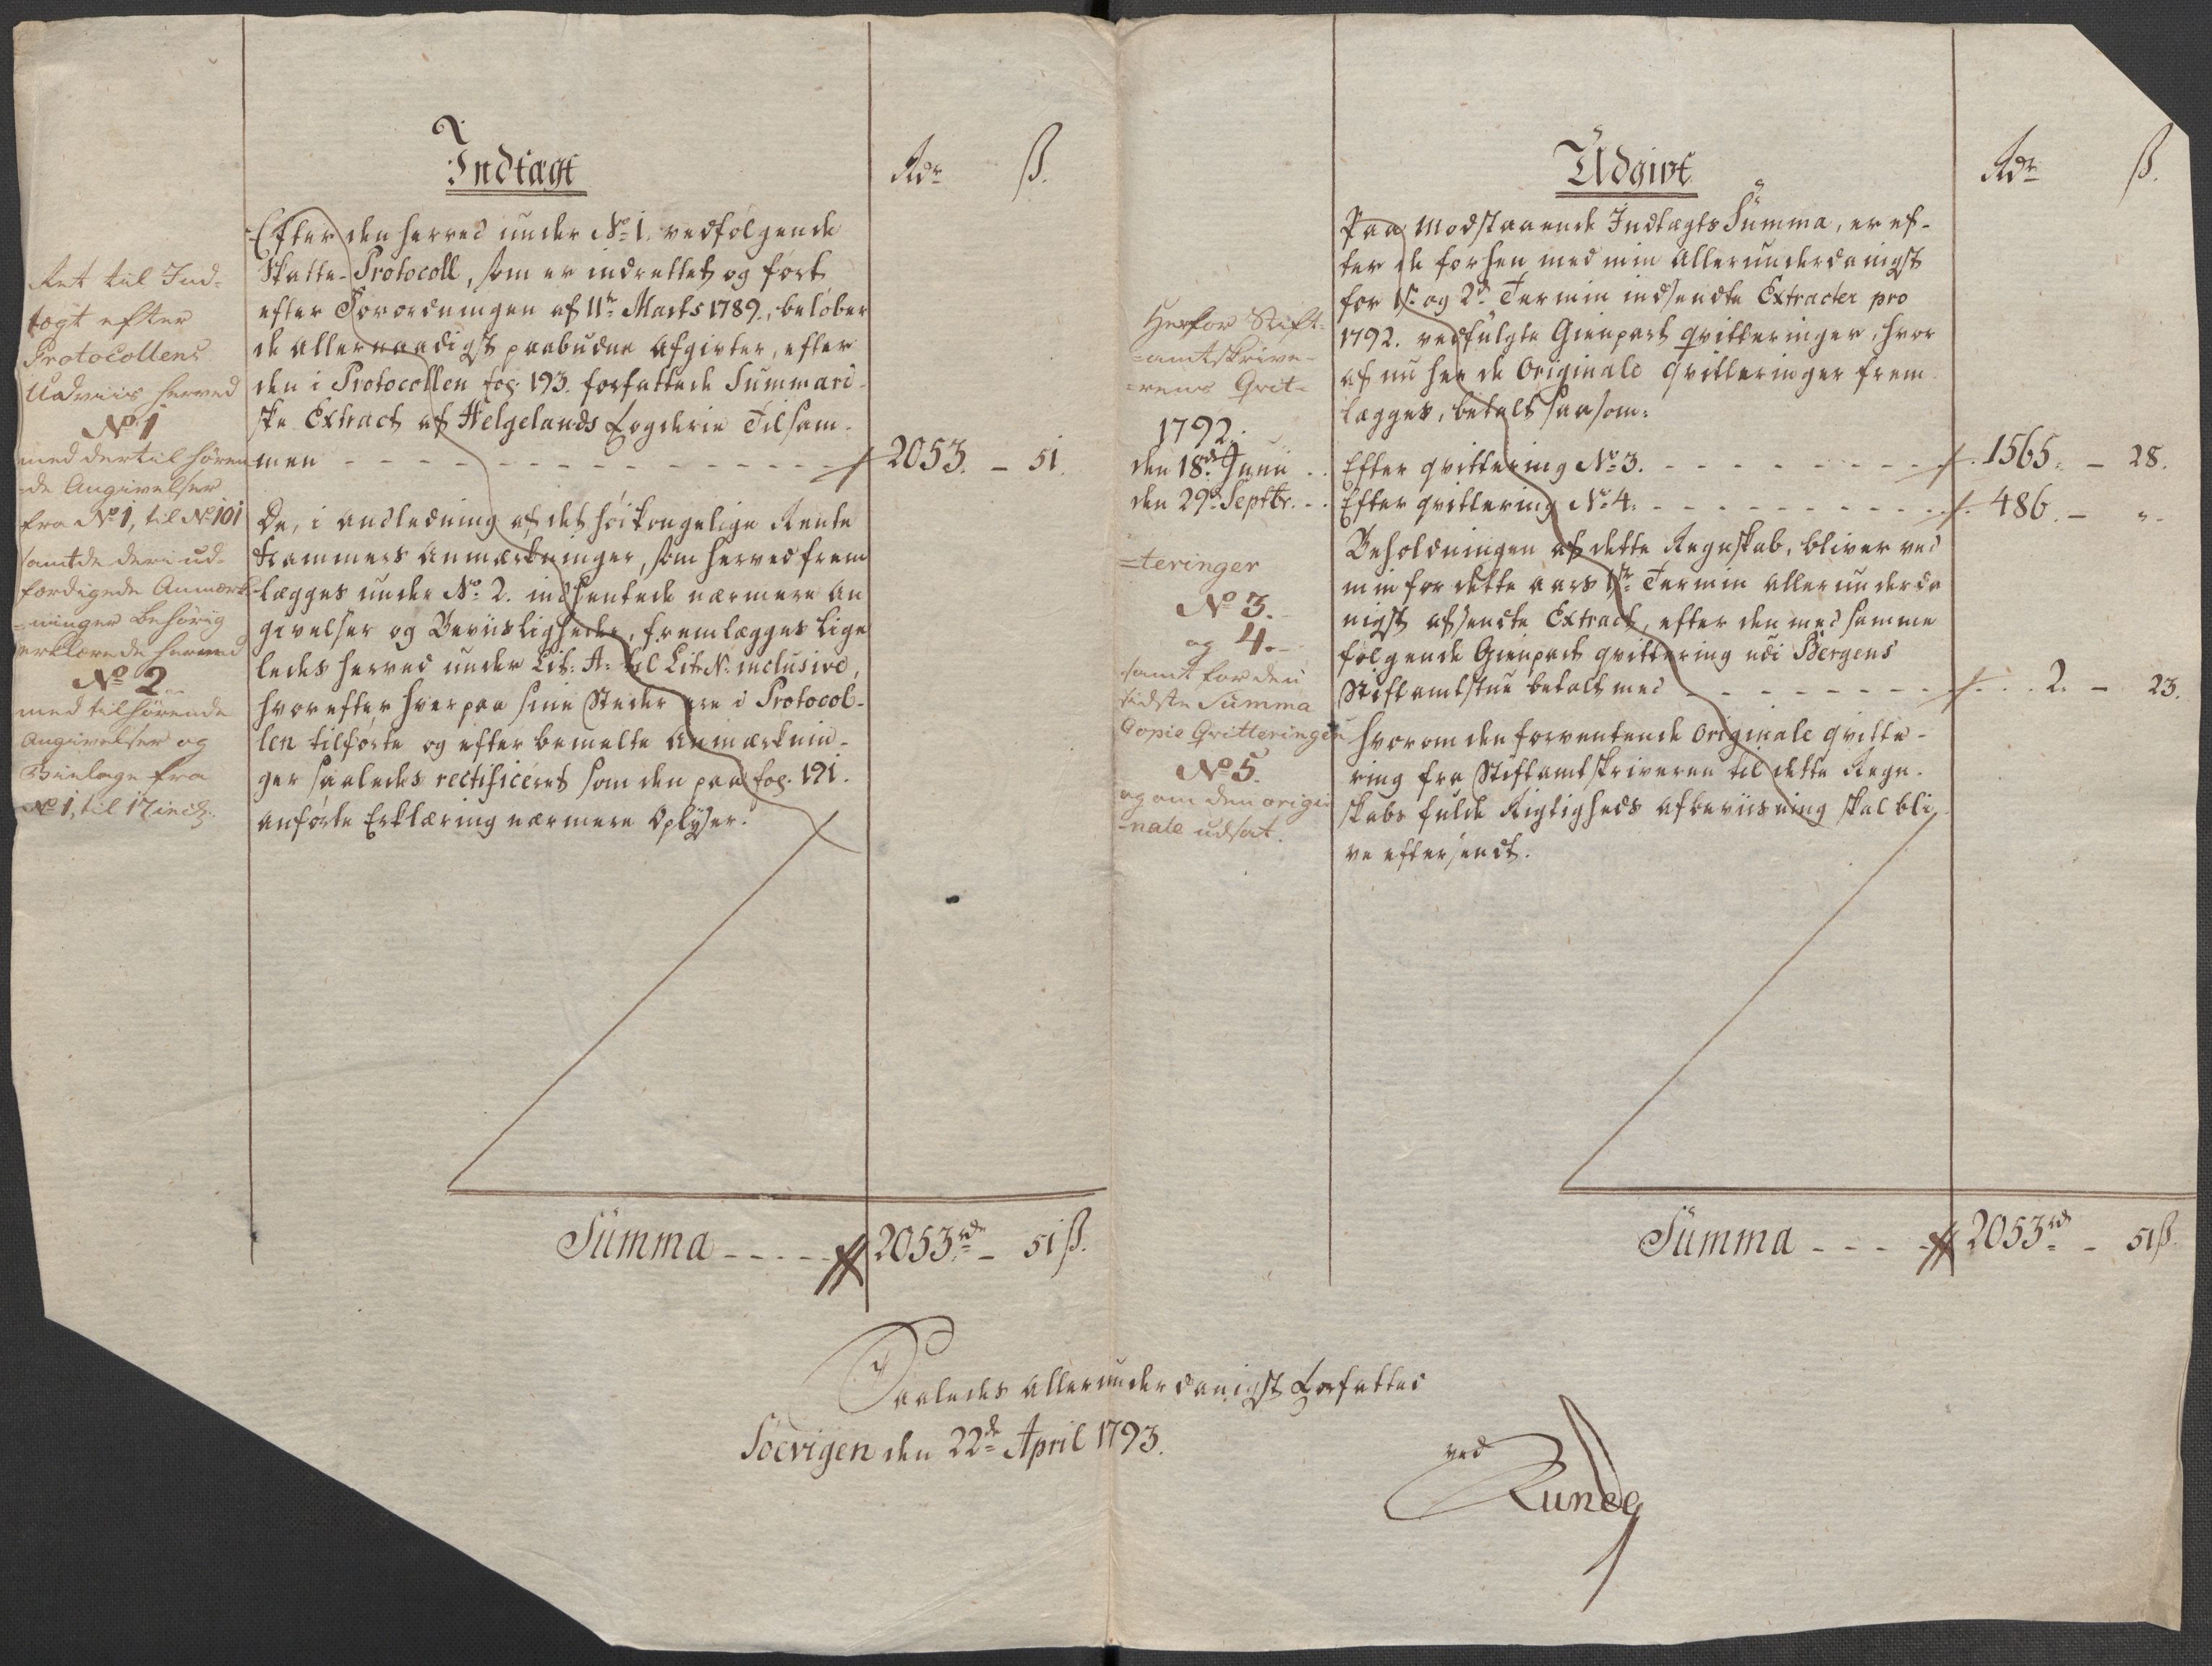 Indtægt
Rdr ß.
Efter den herved under No 1. vedfølgende
Skatte-Protocoll, som er indrettet og ført
efter Forordningen af 11te Marts 1789., beløber
de allernaadigst paabudne Afgivter, efter
den i Protocollen fog. 193. forfattede Summari-
ske Extract af Helgelands Fogderie Tilsam-
men - - - 2053. - 51.
Da, i anledning af det høikongelige Rente
Kammers Anmærkninger, som herved frem
lægges under No. 2. indhentede nærmere An
givelser og Beviisligheder, fremlægges lige
ledes herved under Lit: A. til Lit: N. inclusive,
hvorefter hver paa sine Steder ere i Protocol-
len tilførte og efter bemelte Anmærknin-
ger saaledes rectificeret som den paa fog. 191.
anførte Erklæring nærmere Oplyser.
Summa - - - - - 2053rd - 51 ß.
Ret til Ind-
tægt efter
Protocollens
Udviis herved
No 1
med dertil høren
-de Angivelser
fra No 1, til No 101
samt de deri ud-
færdigede Anmærk-
-ninger behørig
erklærede herved
No 2
med tilhørende
Angivelser og
Bielage fra
No 1, til 17 incl:
Udgivt
Rdr ß.
Paa modstaaende Indtægts Summa, er ef-
ter de forhen med min allerunderdanigst
for 1ste og 2den Termin indsendte Extracter pro
1792. vedfulgte Gienpart qvitteringer, hvor
af nu her de Originale qvitteringer frem
lægges, betalt saasom:
Efter qvittering No 3. - - - 1565. - 28.
Efter qvittering No 4. - - - 486. - "-
Beholdningen af dette Regnskab, bliver ved
min for dette aars 1ste Termin allerunderda
nigst afsendte Extract, efter den med samme
følgende Gienpart qvittering udi Bergens
Stiftamtstue betalt med - - - 2. - 23.
hvorom den forventende originale qvitte-
ring fra Stiftamtskriveren til dette Regn-
skabs fulde Rigtigheds afbeviisning skal bli
ve eftersendt.
Summa - - - - 2053rd - 51 ß
Herfor Stift-
=amtskrive-
=rens Qvit-
1792.
den 18de Junii
den 29de Septbr.
=teringer
No 3.
og 4.
samt for den
sidste Summa
Copie Qvitteringen
No 5.
og om den origi-
-nale udsat.
Saaledes allerunderdanigst Forfattet
Söevigen den 22de April 1793.
ved